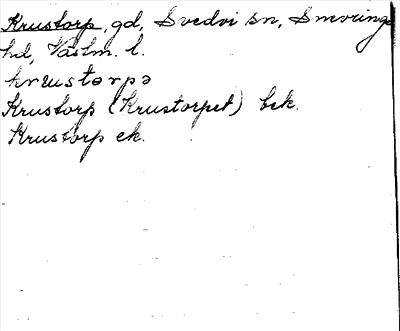 Krustorp, gd, Svedvi sn, Snevringe
hd, Västm. l.
krustərpə
Krustorp (Krustorpet) bek.
Krustorp ek.